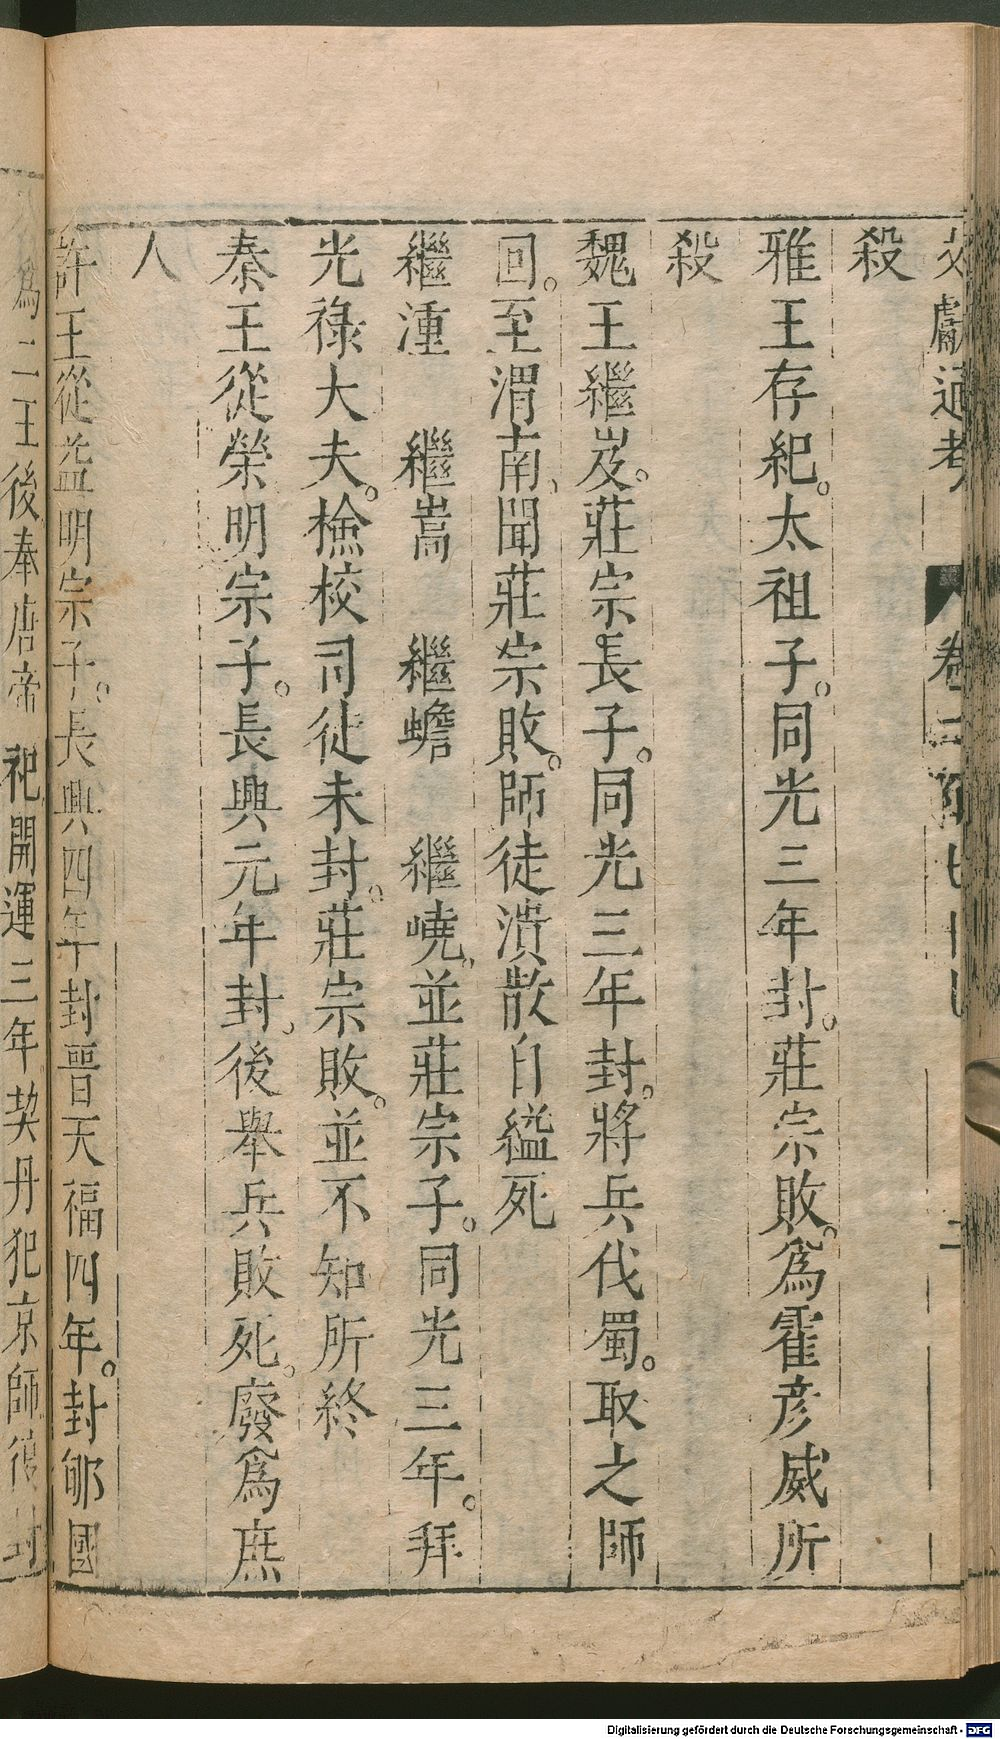 文獻通考 卷二
殺
雅王存紀。太祖子。同光三年封。莊宗敗。為霍彦威所
殺
魏王繼岌。莊宗長子。同光三年封。將兵伐蜀。取之師
回。至渭南、聞莊宗敗。師徒潰散自縊死
繼潼 繼嵩 繼蟾 繼嶢、並莊宗子。同光三年。拜
光祿大夫。檢校司徒未封。莊宗敗。並不知所終
秦王從榮明宗子。長興元年封、後舉兵敗死。廢為庶
人
許王從益明宗子。長興四年封晉天福四年。封郇國
為二王後奉唐帝祀開運三年契丹犯京師復封
Digitalisierung gefördert durch die Deutsche Forschungsgemeinschaft - DFG